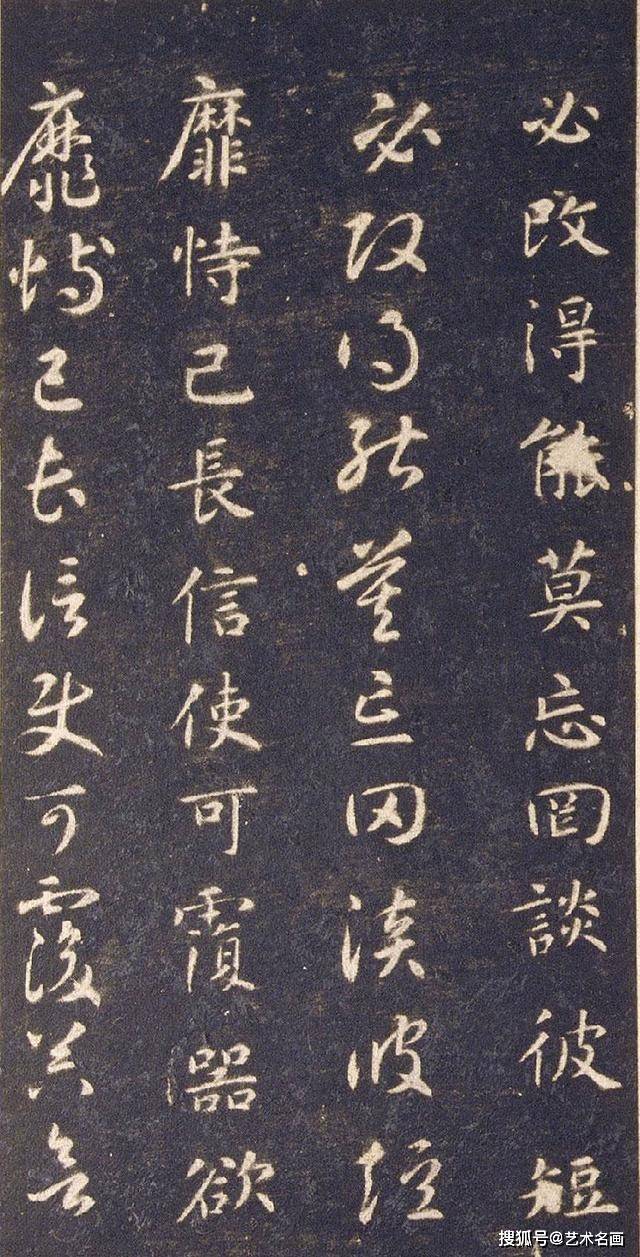 必改得能莫忘罔談彼短
必改得能莫忘罔談彼短
靡恃己長信使可覆器欲
靡恃己長信使可覆器欲
搜狐号@艺术名画